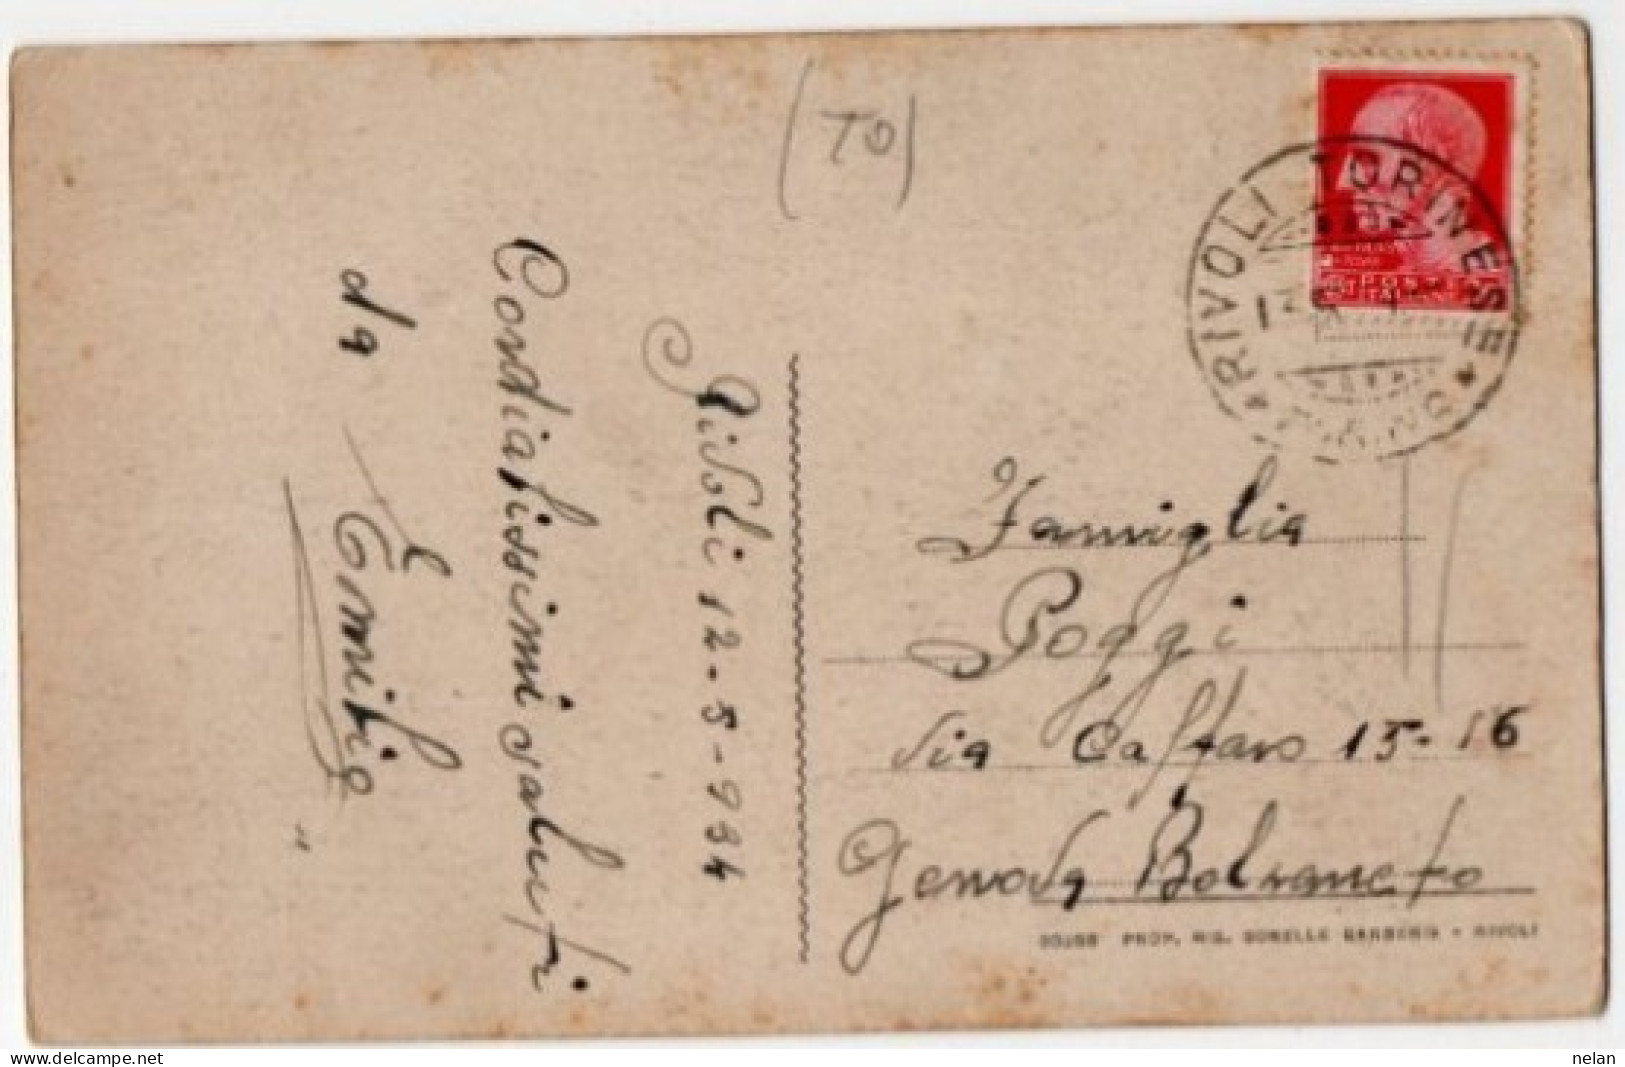 (TO)
Rivoli 12-5-934
Cordialissimi saluti
da
Emilio
RIVOLI TORINESE
* (TORINO) *
POSTE
ITALIANE
Famiglia
Poggi
Via Caffaro 15-16
Genova Bolzaneto
PROP. RIS. SORELLE - RIVOLI
www.delcampe.net
nelan